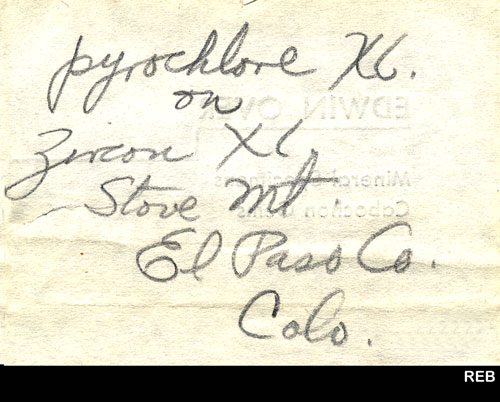 pyrochlore Xl.
on
Zircon Xl.
Stove Mt.
El Paso Co.
Colo.
EDWIN OVER
Mineral Specimens
Cabochon
REB